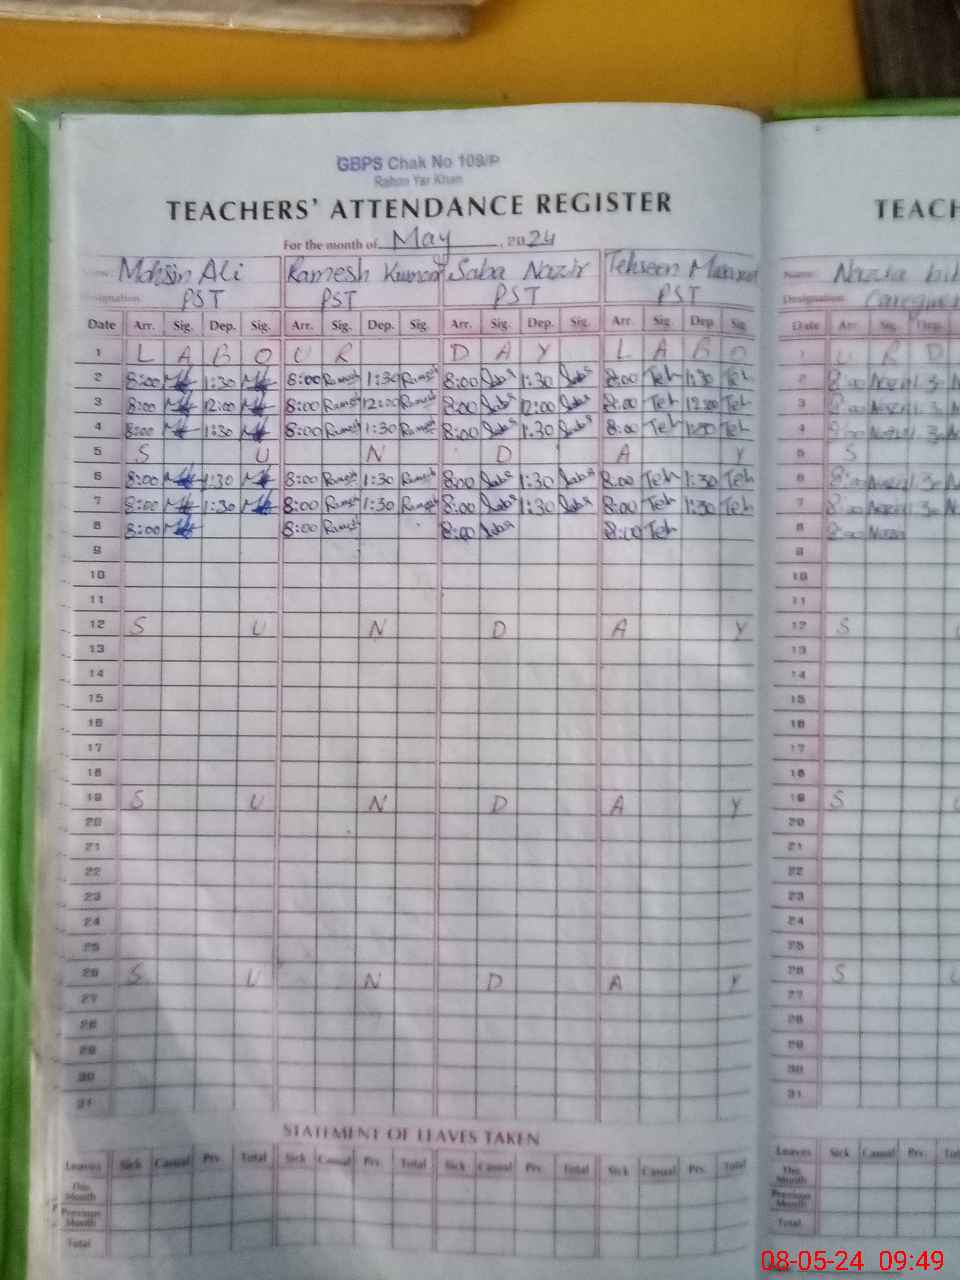 GBPS Chak No 109/P
Rahim Yar Khan
TEACHERS' ATTENDANCE REGISTER
For the month of May, 2024
Mohsin Ali Ramesh Kumar Saba Nazir Tehseen
PST PST PST PST
Date Arr. Sig. Dep. Sig. Arr. Sig. Dep. Sig. Arr. Sig. Dep. Sig. Arr. Sig. Dep. Sig
1 L A B O U R D A Y L A B O
2 8:00 1:30 8:00 Ramesh 1:30 Ramesh 8:00 Saba 1:30 Saba 8:00 Teh 1:30 Teh
3 8:00 12:00 8:00 Ramesh 12:00 Ramesh 8:00 Saba 12:00 Saba 8:00 Teh 12:00 Teh
4 8:00 1:30 8:00 Ramesh 1:30 Ramesh 8:00 Saba 1:30 Saba 8:00 Teh 1:30 Teh
5 S U N D A Y
6 8:00 1:30 8:00 Ramesh 1:30 Ramesh 8:00 Saba 1:30 Saba 8:00 Teh 1:30 Teh
7 8:00 1:30 8:00 Ramesh 1:30 Ramesh 8:00 Saba 1:30 Saba 8:00 Teh 1:30 Teh
8 8:00 8:00 Ramesh 8:00 Saba 8:00 Teh
9
10
11
12 S U N D A Y
13
14
15
16
17
18
19 S U N D A Y
20
21
22
23
24
25
26 S U N D A Y
27
28
29
30
31
STATEMENT OF LEAVES TAKEN
Leaves Sick Casual Prv. Total Sick Casual Prv. Total Sick Casual Prv. Total Sick Casual Prv. Total
This Month
Previous Month
Total
TEACH
Name: Nazia
Designation
Date Arr. Sig. Dep.
1 U R D
2 8:00
3 8:00
4 8:00
5 S
6 8:00
7 8:00
8 8:00
9
10
11
12 S
13
14
15
16
17
18
19 S
20
21
22
23
24
25
26 S
27
28
29
30
31
Leaves Sick Casual Prv.
This Month
Previous Month
Total
08-05-24 09:49